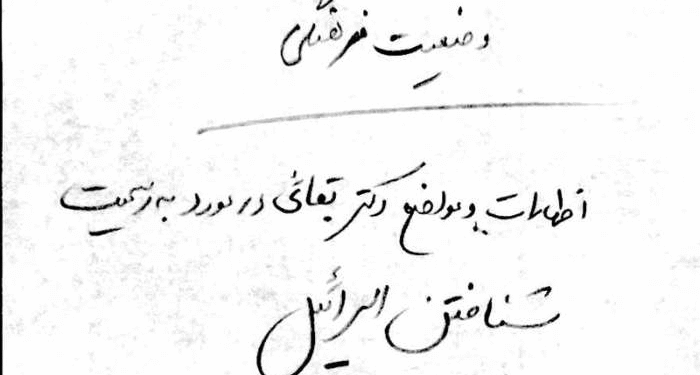 وضعیت فرهنگی
اظهارات و مواضع دکتر بقائی در مورد به رسمیت
شناختن اسرائیل